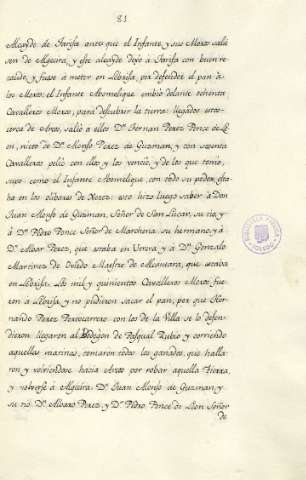 81
Alcayde de Tarifa antes que el Infante, y sus Moros salie
sen de Algeçira, y este alcayde dejo à Tarifa con buen re
caudo, y fuese à meter en Llebrija, por defender el pan à
los Moros: el Infante Abomelique embio delante ochenta
Cavalleros Moros, para descubrir la tierra: llegados estos
cerca de Arcos, salió à ellos Dⁿ Fernan Perez Ponce de Le
on, nieto de Dⁿ Alonso Perez de Guzman, y con setenta
Cavalleros peleó con ellos y los venció, y de los que tomó,
supo como el Infante Abomelique, con todo su poder esta
ba en los olibares de Xerez: esto hizo luego saber à Don
Juan Alonso de Guzman, Señor de San Lúcar, su tio, y
à Dⁿ Pedro Ponce Señor de Marchena, su hermano, y à
Dⁿ Albar Perez, que estaba en Utrera, y à Dⁿ Gonzalo
Martinez de Oviedo Maestre de Alcantara, que estaba
en Llebrija. Los mil y quinientos Cavalleros Moros fue
ron à Llebrija, y no pudieron sacar el pan, por que Her
nando Perez Portocarrero con los de la Villa se lo defen
dieron: llegaron al Bodegon de Pasqual Rubio, y corriendo
aquellas marinas, tomaron todos los ganados, que halla
ron, y volviendose hacia Arcos por robar aquella tierra,
y volverse à Algeçira. Dⁿ Juan Alonso de Guzman, y
su tio Dⁿ Alvaro Perez, y Dⁿ Pedro Ponce de Leon Señor
de